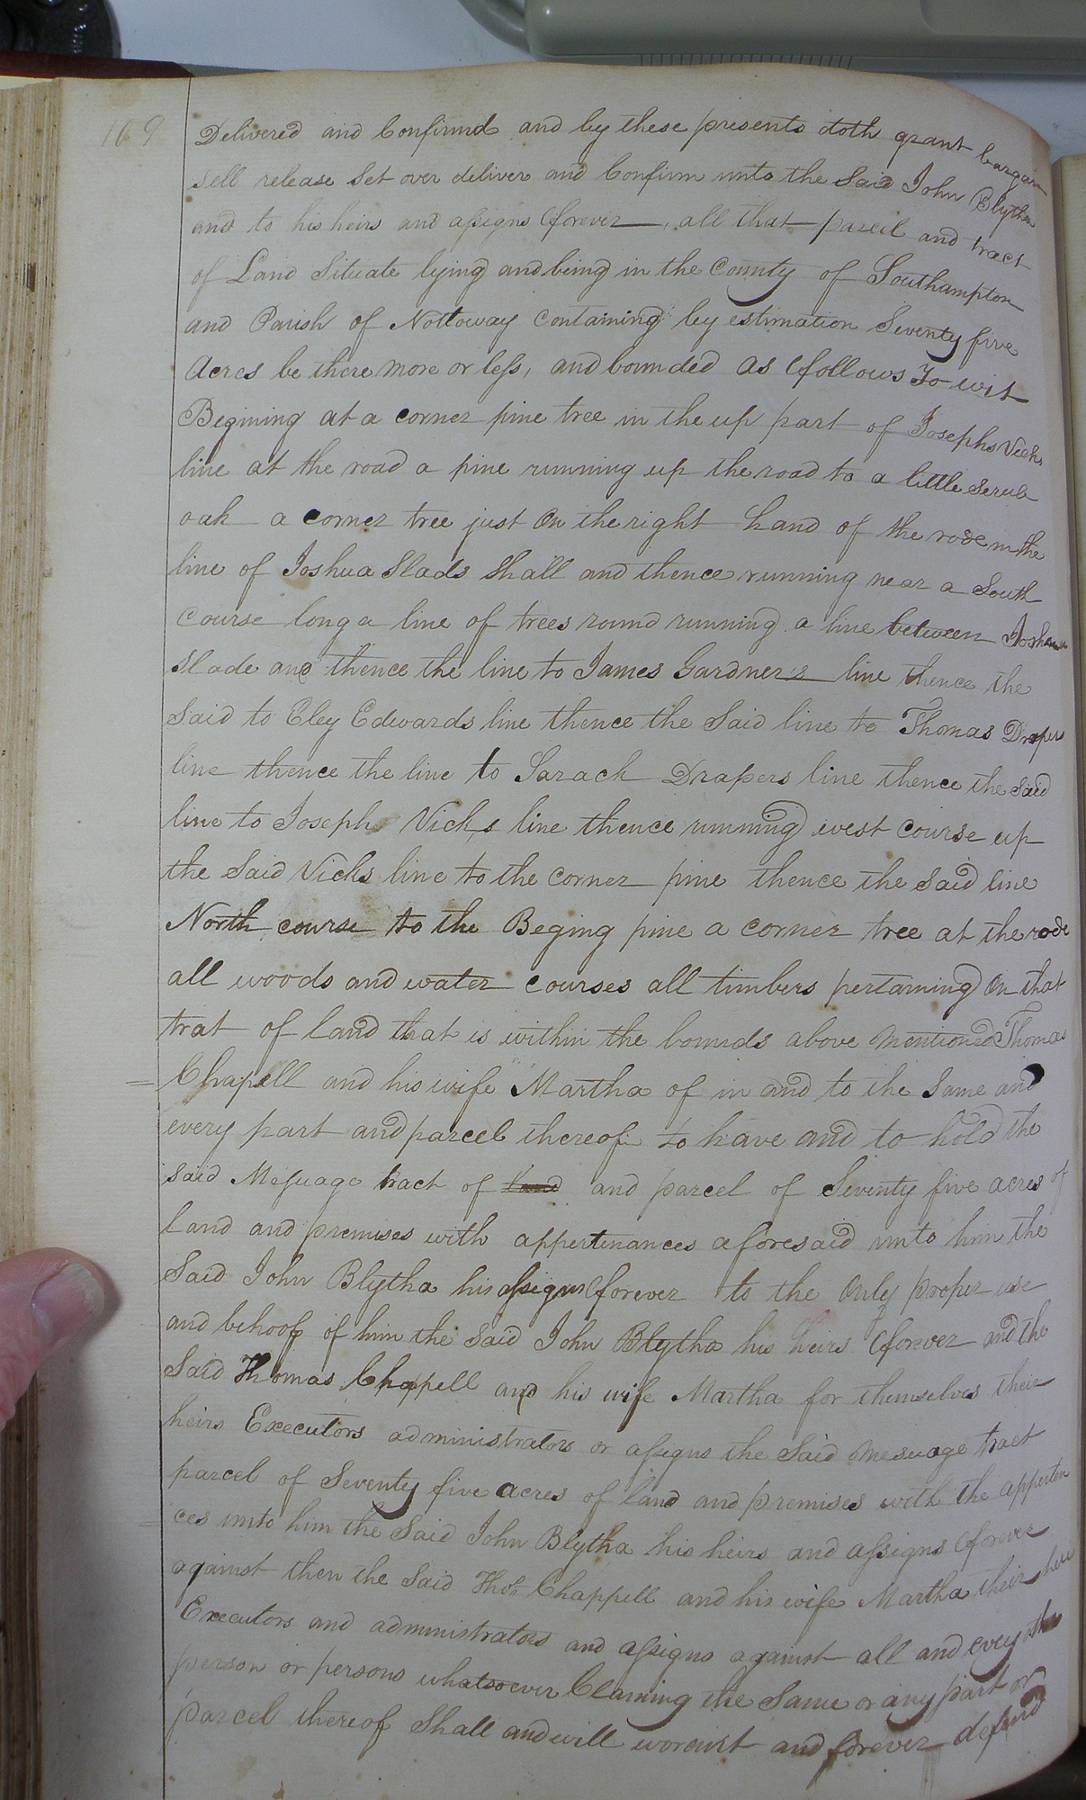 169
Delivered and Confirmd and by these presents doth grant bargain
sell release Set over deliver and Confirm unto the Said John Blytha
and to his heirs and assigns forever, all that parcil and tract
of Land Situate lying and being in the County of Southampton
and Parish of Nottoway Containing by estimation Seventy five
Acres be there more or less, and bounded as follows To wit
Begining at a corner pine tree in the up part of Josephs Vicks
line at the road a pine running up the road to a little Scrub
oak a corner tree just on the right hand of the rode in the
line of Joshua Slads Shall and thence running near a South
Course long a line of trees round running a line between Joshua
Slade and thence the line to James Gardner's line thence the
Said to Eley Edwards line thence the Said line to Thomas Drapers
line thence the line to Sarach Drapers line thence the Said
line to Joseph Vicks line thence running west Course up
the Said Vicks line to the corner pine thence the Said line
North course to the Beging pine a corner tree at the rode
all woods and water courses all timbers pertaining on that
trat of land that is within the bounds above mentioned Thomas
Chapell and his wife Martha of in and to the Same and
every part and parcel thereof to have and to hold the
said Messuage tract of land and parcel of Seventy five acres of
land and premises with appertenances aforesaid unto him the
Said John Blytha his assigns forever to the only proper use
and behoof of him the Said John Blytha his heirs forever and the
Said Thomas Chappell and his wife Martha for themselves their
heirs Executors administrators or assigns the Said mesuage tract
parcel of Seventy five acres of land and premises with the apperten
ces unto him the Said John Blytha his heirs and assigns forever
against then the Said Thos Chappell and his wife Martha their heirs
Executors and administrators and assigns against all and every other
person or persons whatsoever Claming the Same or any part or
parcel thereof Shall and will and forever defend